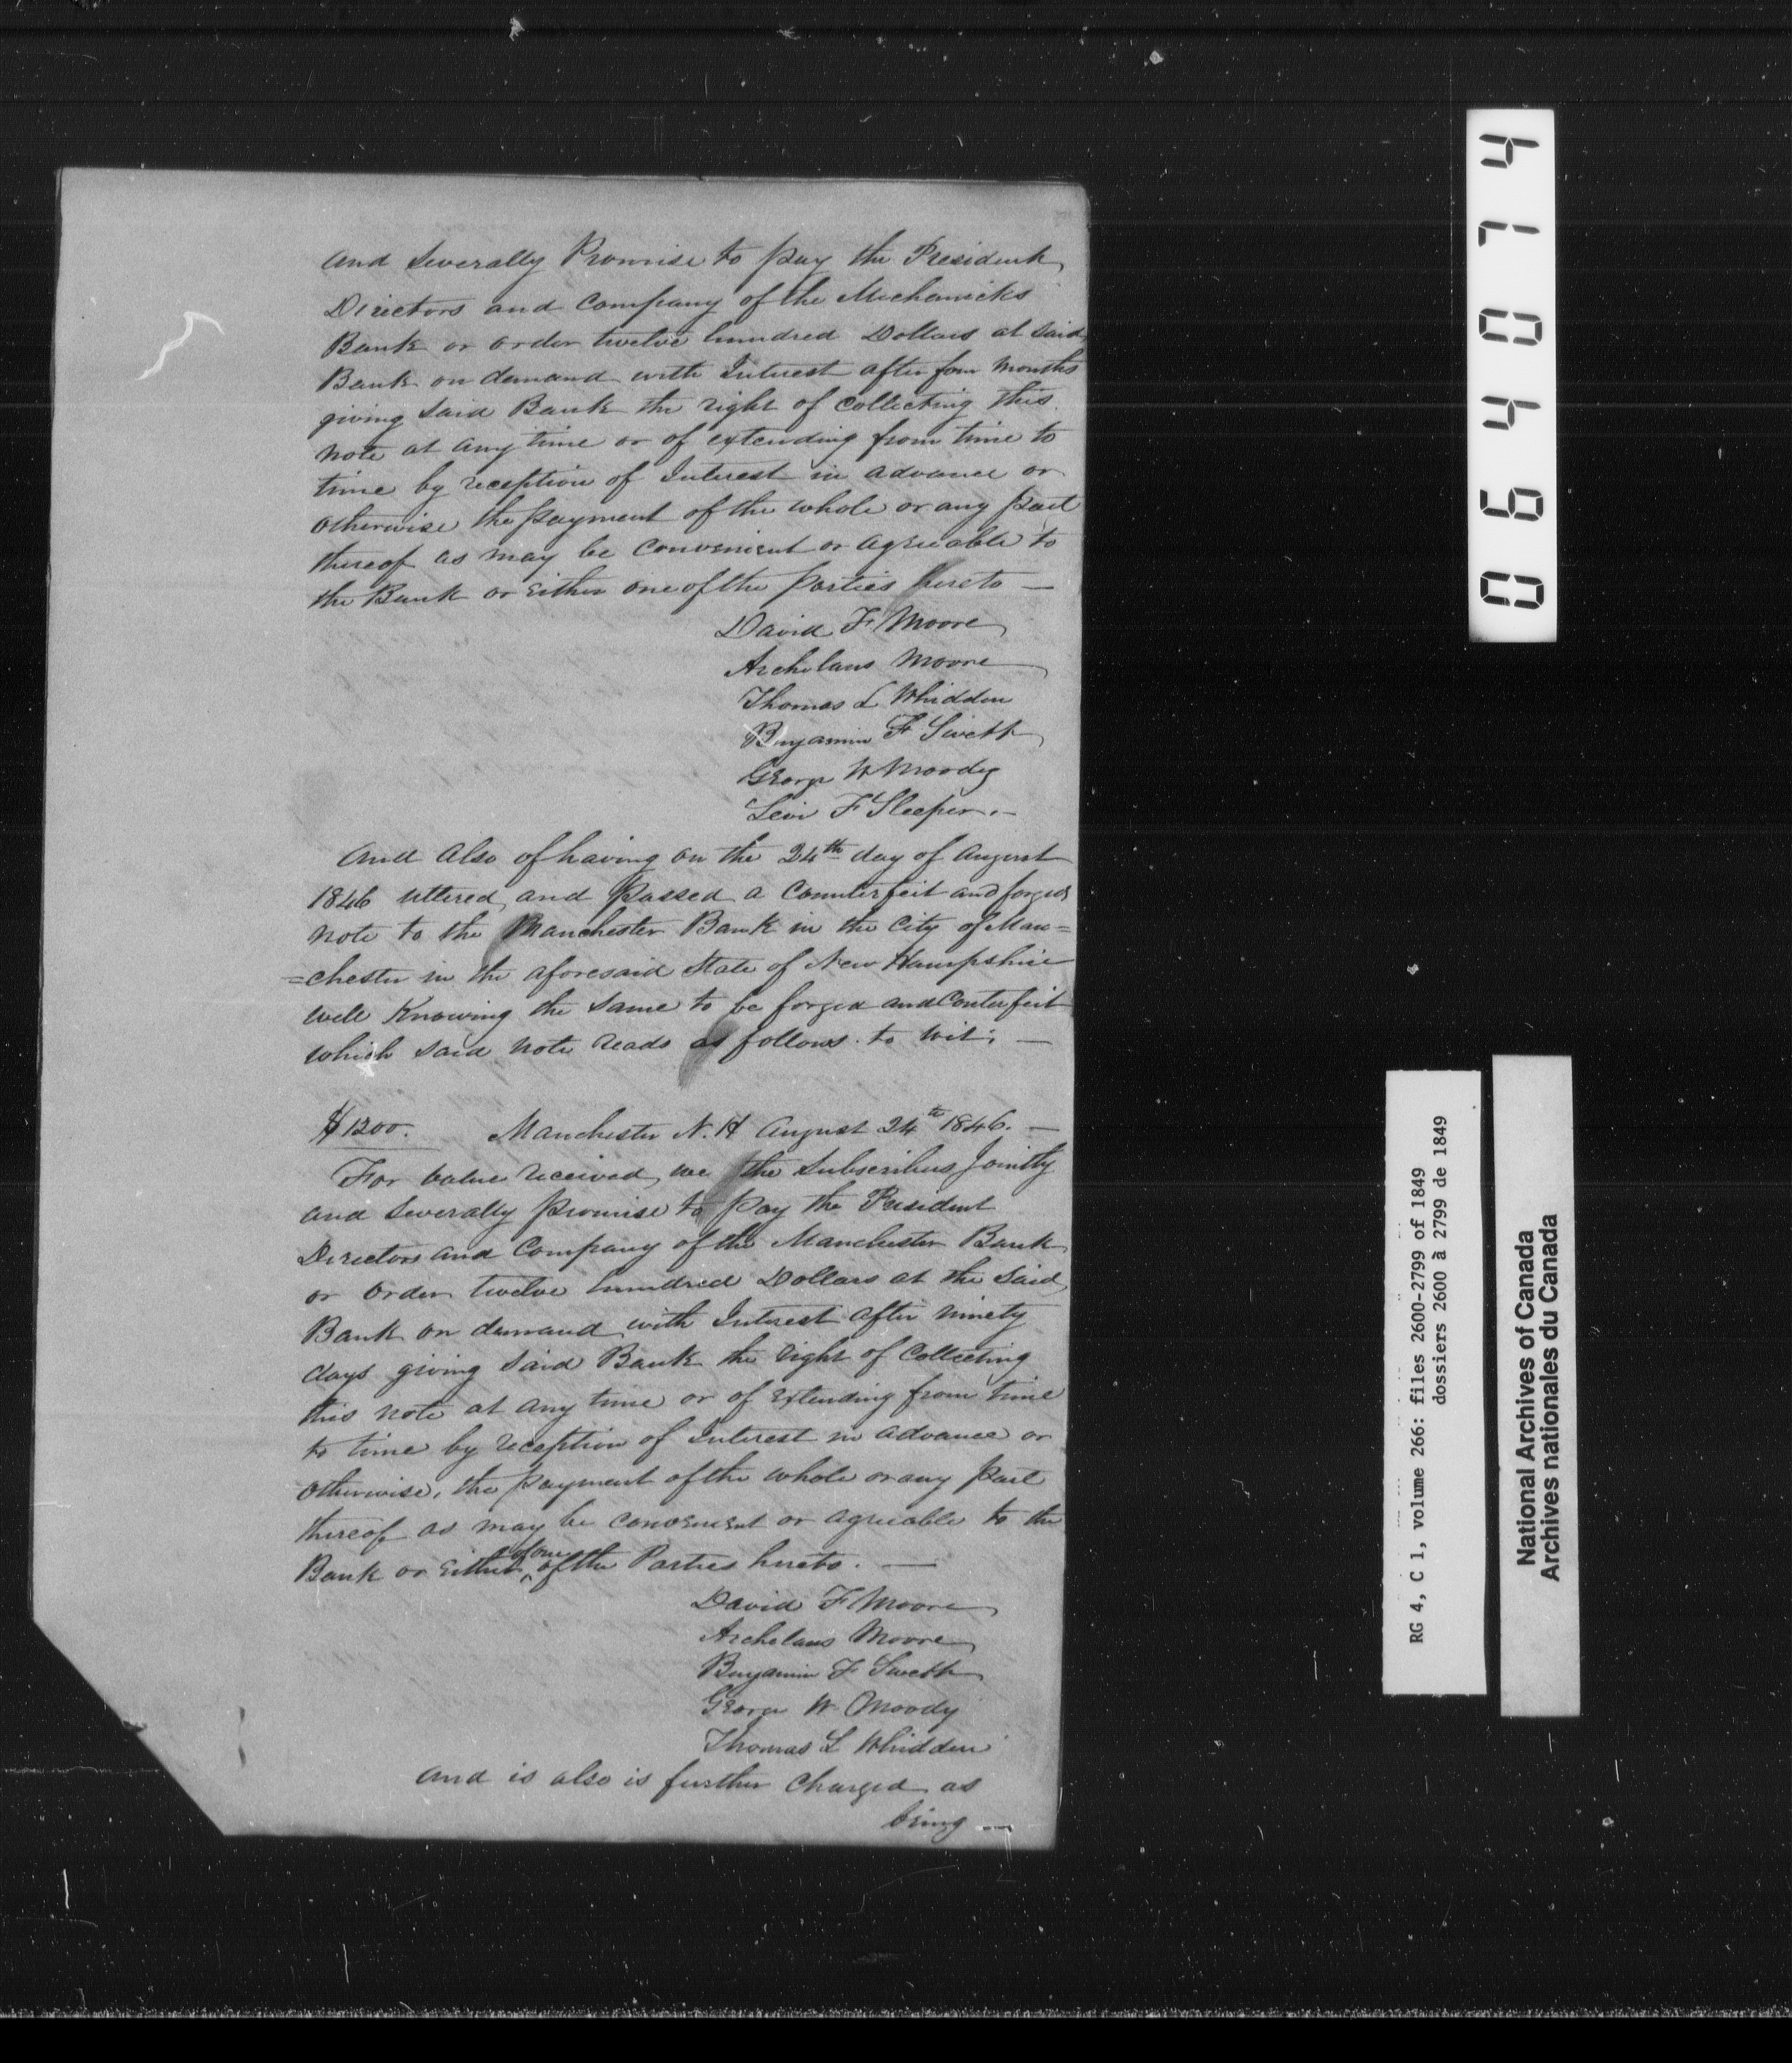 and Severally Promise to pay the President
Directors and Company of the Mechanicks
Bank or order twelve hundred Dollars at said
Bank on demand with Interest after four months
giving said Bank the right of collecting this
note at any time or of extending from time to
time by reception of Interest in advance or
otherwise the payment of the whole or any part
thereof as may be convenient or agreeable to
the Bank or Either one of the parties hereto —
David F Moore
Archelaus Moore
Thomas L Whidden
Benjamin F Swett
George W Moody
Levi F Sleeper. —
And also of having on the 24th day of August
1846 uttered and passed a Counterfeit and forged
note to the Manchester Bank in the City of Man=
=chester in the aforesaid State of New Hampshire
well Knowing the same to be forged and Conterfeit
which said note reads as follows. to wit; —
$1200. Manchester N. H August 24th 1846. —
For value received, we the Subscribers Jointly
and Severally promise to pay the President
Directors and Company of the Manchester Bank
or order twelve hundred Dollars at the said
Bank on demand with Interest after ninety
days giving said Bank the right of Collecting
this note at any time or of extending from time
to time by reception of Interest in advance or
otherwise, the payment of the whole or any part
thereof as may be convenient or agreeable to the
Bank or Either of one of the Parties hereto. —
David F Moore
Archelaus Moore
Benjamin F Swett
George W Moody
Thomas L Whidden
And is also is further Charged as
being —
064074
RG 4, C 1, volume 266: files 2600-2799 of 1849
dossiers 2600 à 2799 de 1849
National Archives of Canada
Archives nationales du Canada